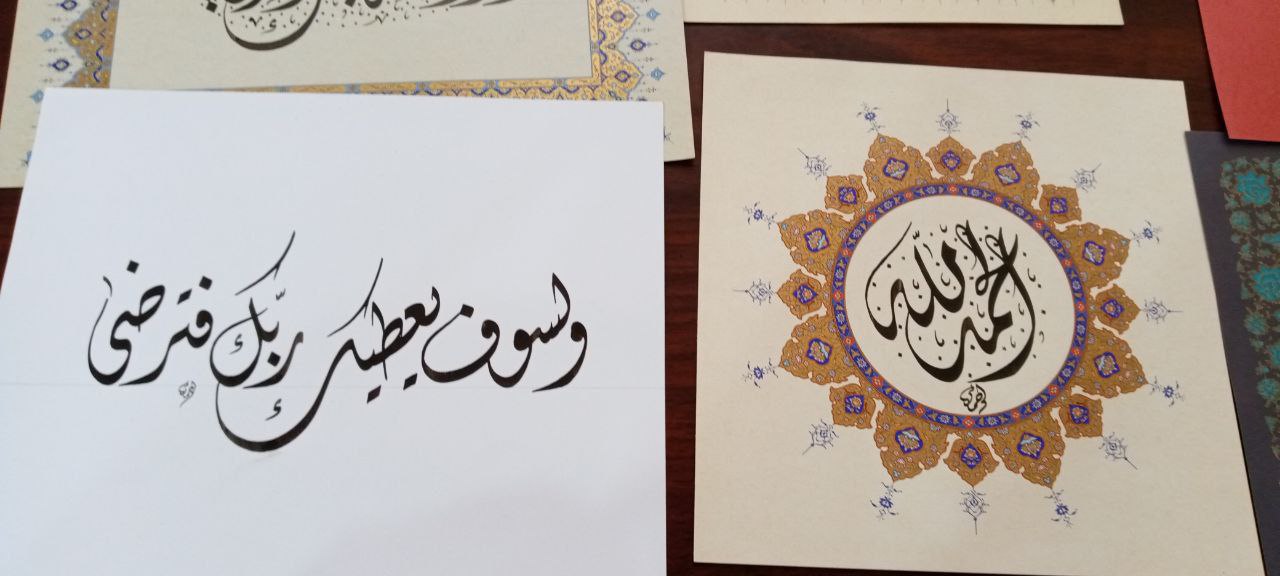 ولسوف يعطيك ربّك فترضى
الحمد لله